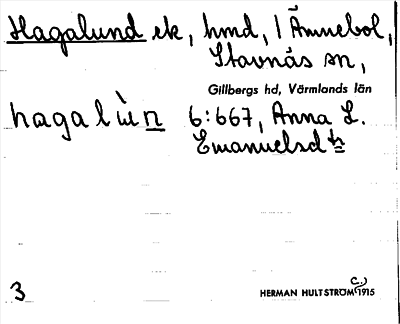 Hagalund ek, hmd, 1 Ämnebol,
Stavnäs sn,
Gillbergs hd, Värmlands län
hagalu̇̀n 6:667, Anna L.
Emanuelsd tr
3
HERMAN HULTSTRÖM (C.) 1915